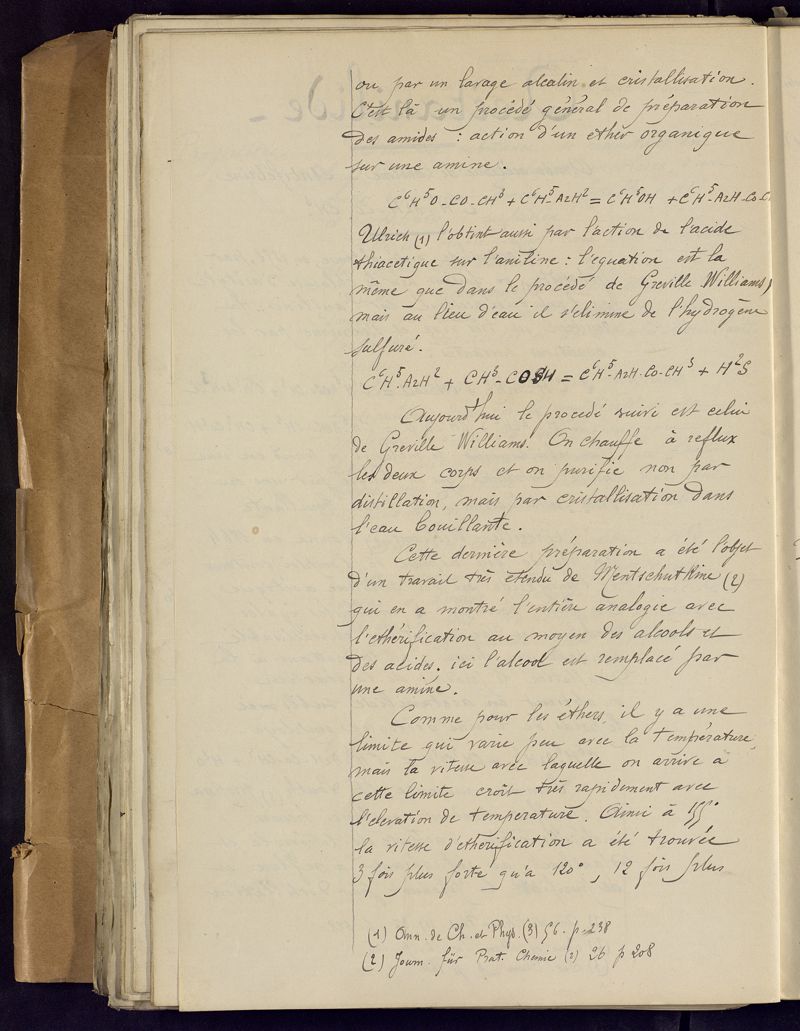 ou par un lavage alcalin et cristallisation.
C'est là un procédé général de préparation
des amides : action d'un ether organique
sur une amine.
C⁶H⁵O-CO-CH³ + C⁶H⁵AzH² = C⁶H⁵OH + C⁶H⁵-AzH-Co-C
Ulrich (1) l'obtint aussi par l'action de l'acide
thiacetique sur l'aniline : l'equation est la
même que dans le procédé de Greville Williams,
mais au lieu d'eau il s'élimine de l'hydrogène
sulfuré.
C⁶H⁵.AzH² + CH³-COSH = C⁶H⁵-AzH-Co-CH³ + H²S
Aujourd'hui le procedé suivi est celui
de Greville Williams. On chauffe à reflux
les deux corps et on purifie non par
distillation, mais par cristallisation dans
l'eau bouillante.
Cette dernière préparation a été l'objet
d'un travail très étendu de Mentschutkine (2)
qui en a montré l'entière analogie avec
l'ethérification au moyen des alcools et
des acides. ici l'alcool est remplacé par
une amine.
Comme pour les éthers, il y a une
limite qui varie peu avec la température,
mais la vitesse avec laquelle on arrive à
cette limite croit très rapidement avec
l'elevation de temperature. Ainsi à 155°
la vitesse d'ethérification a été trouvée
3 fois plus forte qu'a 120°, 12 fois plus
(1) Ann. de Ch. et Phys. (3) 56. p. 238
(2) Journ. für Prat. Chemie (2) 26 p 208